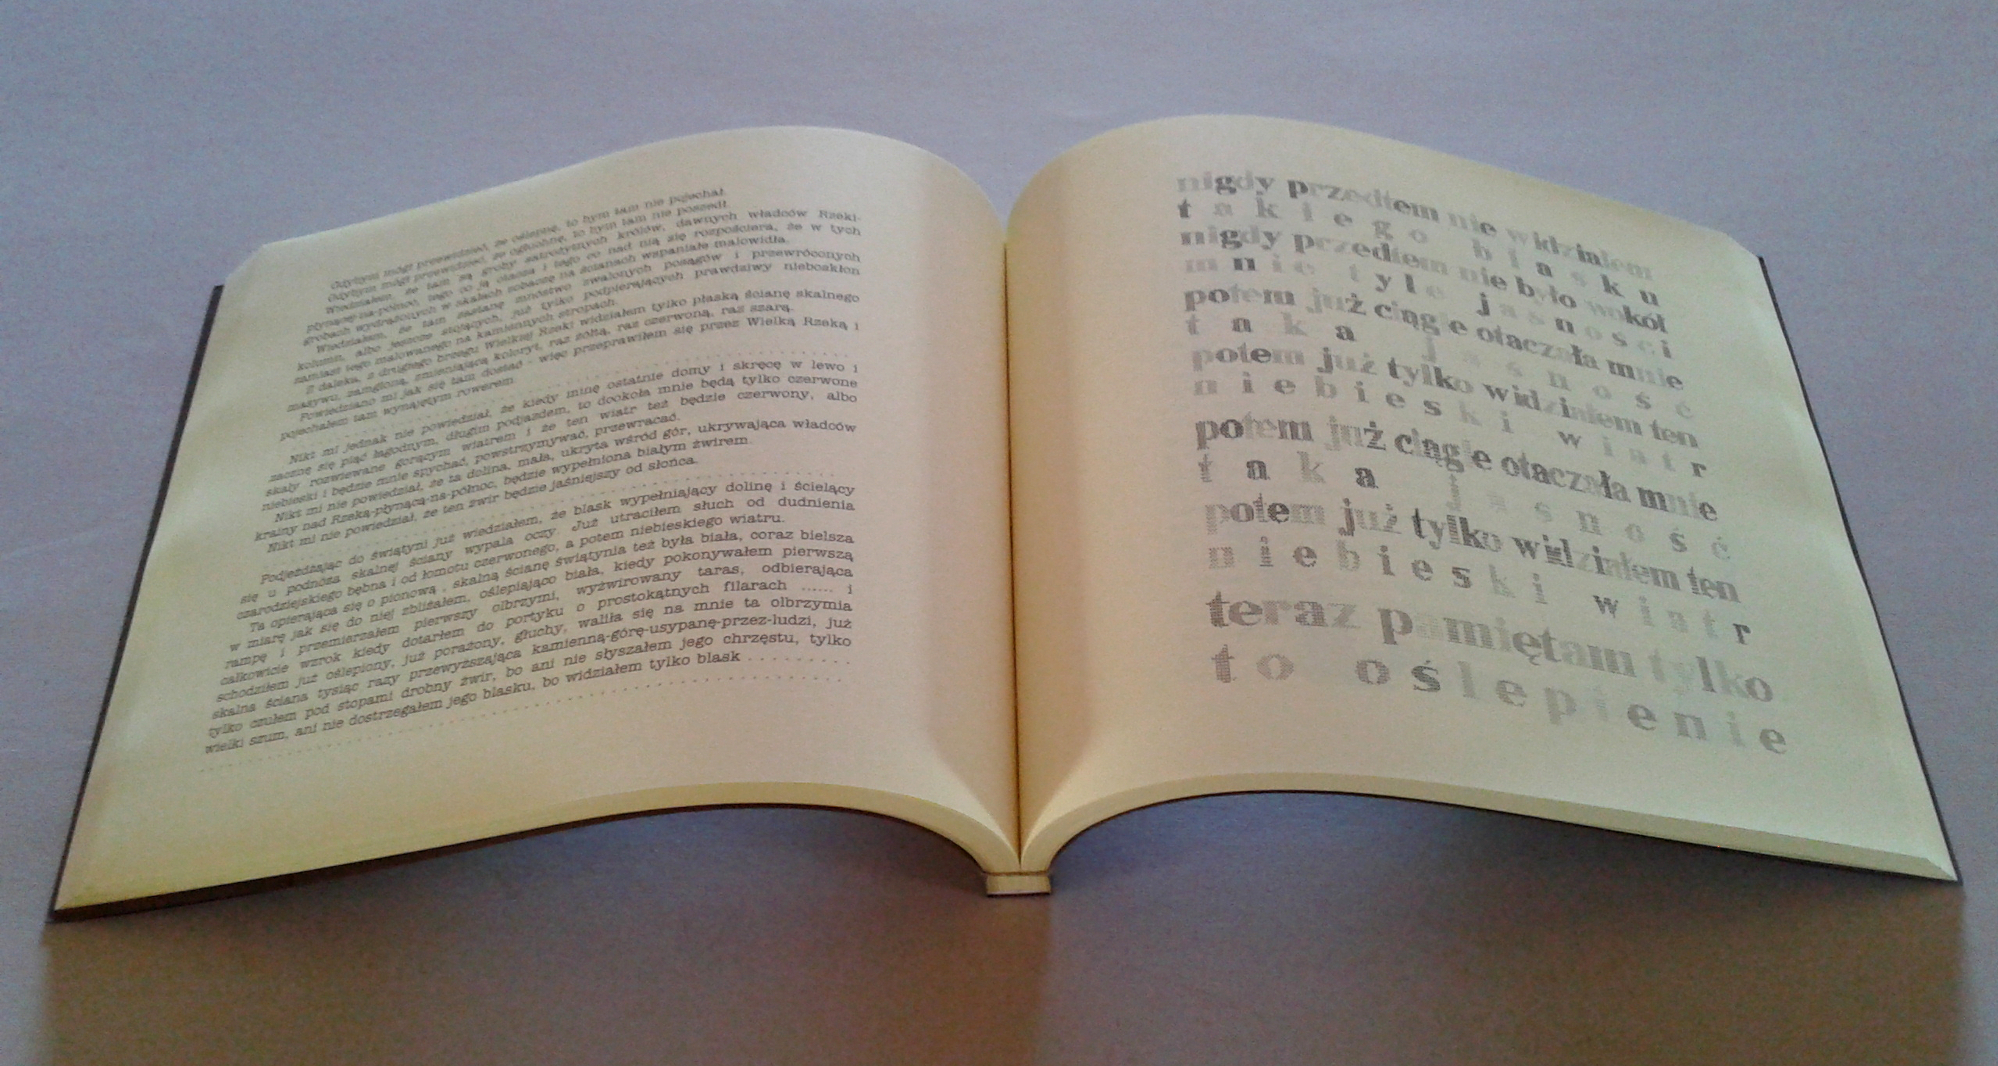 Gdybym mógł przewidzieć, że oślepnę, to bym tam nie pojechał.
Gdybym mógł przewidzieć, że ogłuchnę, to bym tam nie poszedł.
Wiedziałem, że tam są groby satrożytnych królów, dawnych władców Rzeki-
płynącej-na-północ, tego co ją otacza i tego co nad nią się rozpościera, że w tych
grobach wydrążonych w skałach zobaczę na ścianach wspaniałe malowidła.
Wiedziałem, że tam zastanę mnóstwo zwalonych posągów i przewróconych
kolumn, albo jeszcze stojących, już tylko podpierających prawdziwy nieboskłon
zamiast tego malowanego na kamiennych stropach.
Z daleka, z drugiego brzegu Wielkiej Rzeki widziałem tylko płaską ścianę skalnego
masywu, zamgloną, zmieniającą koloryt, raz żółtą, raz czerwoną, raz szarą.
Powiedziano mi jak się tam dostać - więc przeprawiłem się przez Wielką Rzekę i
pojechałem tam wynajętym rowerem.
Nikt mi jednak nie powiedział, że kiedy minę ostatnie domy i skręcę w lewo i
zacznę się piąć łagodnym, długim podjazdem, to dookoła mnie będą tylko czerwone
skały rozwiewane gorącym wiatrem i że ten wiatr też będzie czerwony, albo
niebieski i będzie mnie spychać, powstrzymywać, przewracać.
Nikt mi nie powiedział, że ta dolina, mała, ukryta wśród gór, ukrywająca władców
krainy nad Rzeką-płynącą-na-północ, będzie wypełniona białym żwirem.
Nikt mi nie powiedział, że ten żwir będzie jaśniejszy od słońca.
Podjeżdżając do świątyni już wiedziałem, że blask wypełniający dolinę i ścielący
się u podnóża skalnej ściany wypala oczy. Już utraciłem słuch od dudnienia
czarodziejskiego bębna i od łomotu czerwonego, a potem niebieskiego wiatru.
Ta opierająca się o pionową , skalną ścianę świątynia też była biała, coraz bielsza
w miarę jak się do niej zbliżałem, oślepiająco biała, kiedy pokonywałem pierwszą
rampę i przemierzałem pierwszy olbrzymi, wyżwirowany taras, odbierająca
całkowicie wzrok kiedy dotarłem do portyku o prostokątnych filarach ...... i
schodziłem już oślepiony, już porażony, głuchy, waliła się na mnie ta olbrzymia
skalna ściana tysiąc razy przewyższająca kamienną-górę-usypaną-przez-ludzi, już
tylko czułem pod stopami drobny żwir, bo ani nie słyszałem jego chrzęstu, tylko
wielki szum, ani nie dostrzegałem jego blasku, bo widziałem tylko blask . . . . . . . . .
nigdy przedtem nie widziałem
takiego blasku
nigdy przedtem nie było wokół
mnie tyle jasności
potem już ciągle otaczała mnie
taka jasność
potem już tylko widziałem ten
niebieski wiatr
potem już ciągle otaczała mnie
taka jasność
potem już tylko widziałem ten
niebieski wiatr
teraz pamiętam tylko
to oślepienie